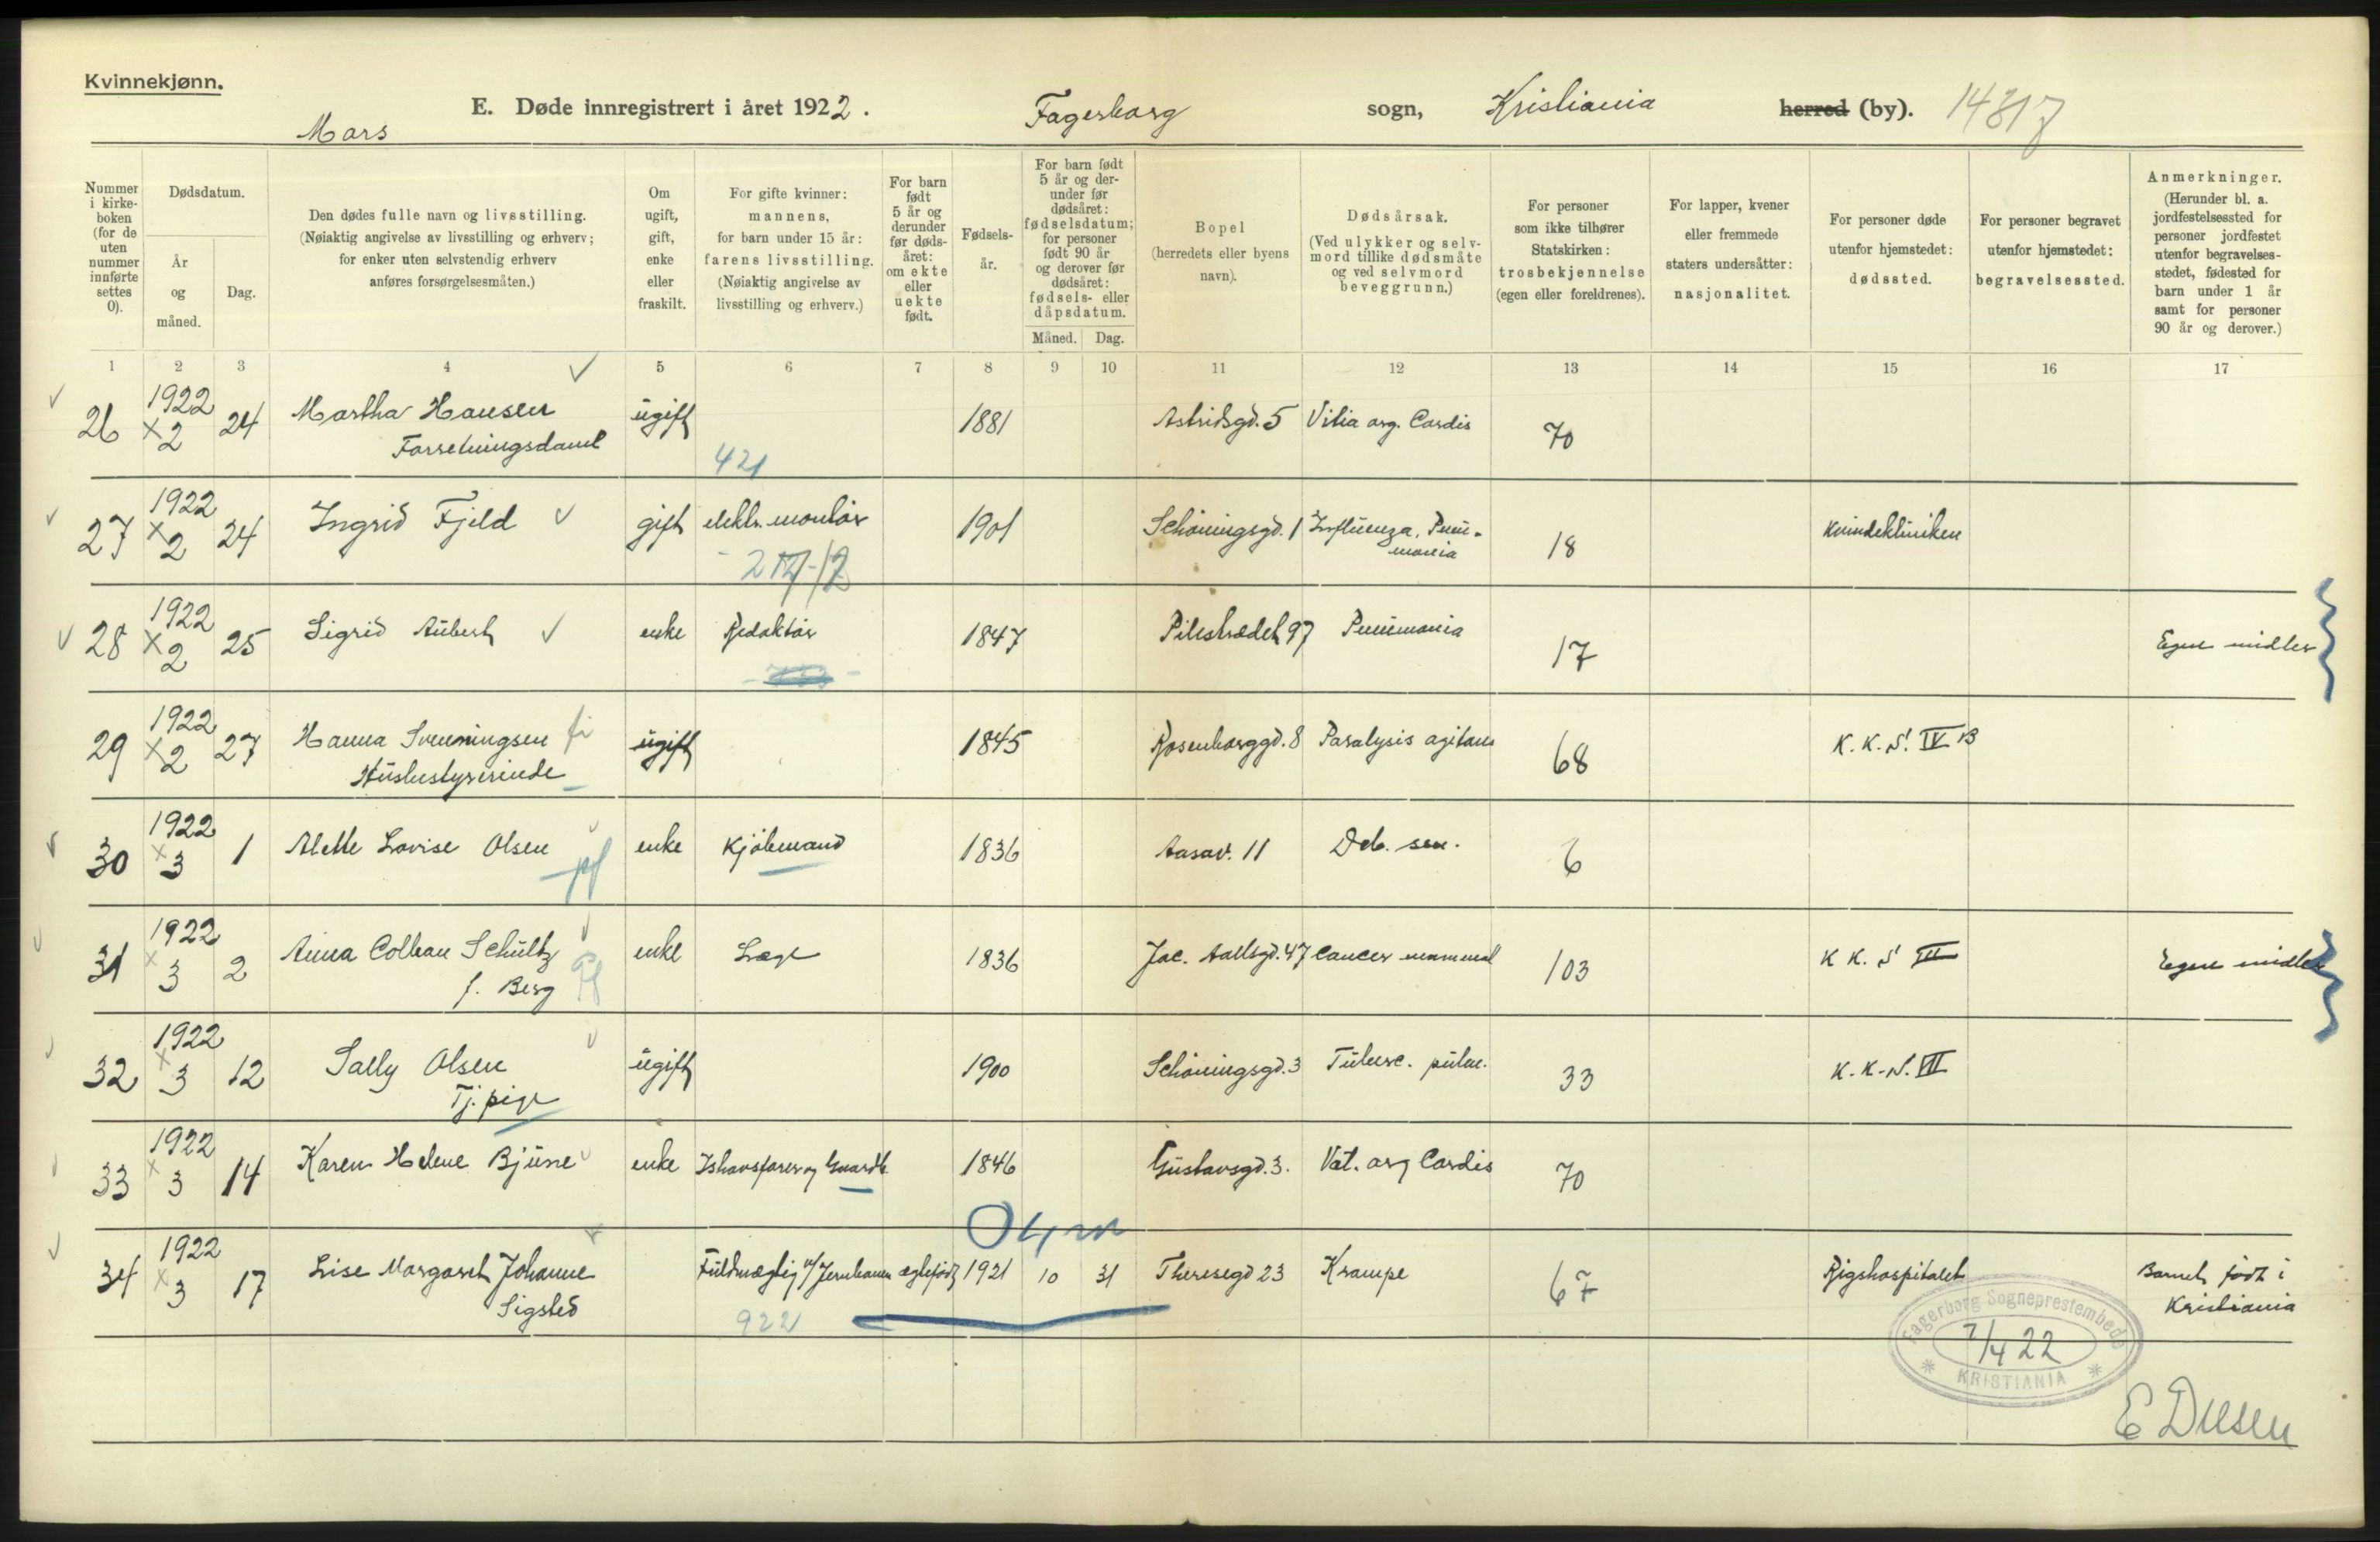 Kvinnekjønn.
E. Døde innregistrert i året 1922. Fagerborg sogn, Kristiania herred (by). 14317
Mars
Nummer i kirke-boken (for de uten nummer innførte settes 0).
Dødsdatum.
År og måned.
Dag.
Den dødes fulle navn og livsstilling.
(Nøiaktig angivelse av livsstilling og erhverv;
for enker uten selvstendig erhverv
anføres forsørgelsesmåten.)
Om ugift, gift, enke eller fraskilt.
For gifte kvinner:
mannens,
for barn under 15 år:
farens livsstilling.
(Nøiaktig angivelse av
livsstilling og erhverv.)
For barn født 5 år og derunder før døds-året: om ekte eller uekte født.
Fødsels-år.
For barn født
5 år og der-
under før
dødsåret:
fødselsdatum;
for personer
født 90 år
og derover før
dødsåret:
fødsels- eller
dåpsdatum.
Måned. Dag.
Bopel
(herredets eller byens
navn).
Dødsårsak.
(Ved ulykker og selv-
mord tillike dødsmåte
og ved selvmord
beveggrunn.)
For personer
som ikke tilhører
Statskirken:
trosbekjennelse
(egen eller foreldrenes).
For lapper, kvener
eller fremmede
staters undersåtter:
nasjonalitet.
For personer døde
utenfor hjemstedet:
dødssted.
For personer begravet
utenfor hjemstedet:
begravelsessted.
Anmerkninger.
(Herunder bl. a.
jordfestelsessted for
personer jordfestet
utenfor begravelses-
stedet, fødested for
barn under 1 år
samt for personer
90 år og derover.)
1 2 3 4 5 6 7 8 9 10 11 12 13 14 15 16 17
26 1922 2 24 Martha Hansen ugift 1881 Astridsgd. 5 Vitia org. Cordis 70
Forretningsdame 421
27 1922 2 24 Ingrid Fjeld gift elektr. montør 1901 Schøningsgd. 1 Influenza, Pneu-
monia 18 Kvindeklinikken
28 1922 2 25 Sigrid Aubert enke Redaktør 1847 Pilestrædet 97 Pneumonia 17 Egne midler
29 1922 2 27 Hanna Svenningsen ugift 1845 Rosenborggd. 8 Paralysis agitans 68 K. K. S. IV B
Husbestyrerinde
30 1922 3 1 Alette Lovise Olsen enke Kjøbmand 1836 Aasav. 11 Deb. sen. 6
31 1922 3 2 Anna Collean Schultz enke Læge 1836 Jac. Aallsgd. 47 Cancer mammae 103 K K. S III Egne midler
f. Berg
32 1922 3 12 Sally Olsen ugift 1900 Schøningsgd. 3 Tuberc. pulm. 33 K. K. S. VII
Tj. pige
33 1922 3 14 Karen Helene Bjune enke Ishavsfarer og Gaardb. 1846 Gustavsgd. 3. Vit. org Cordis 70
34 1922 3 17 Lise Margaret Johanne Fuldmægtig v/Jernbanen ægtefødt 1921 10 31 Theresegd 23 Krampe 67 Rigshospitalet Barnet født i
Sigsted 922 Kristiania
Fagerborg Sogneprestembede
7/4 22
KRISTIANIA